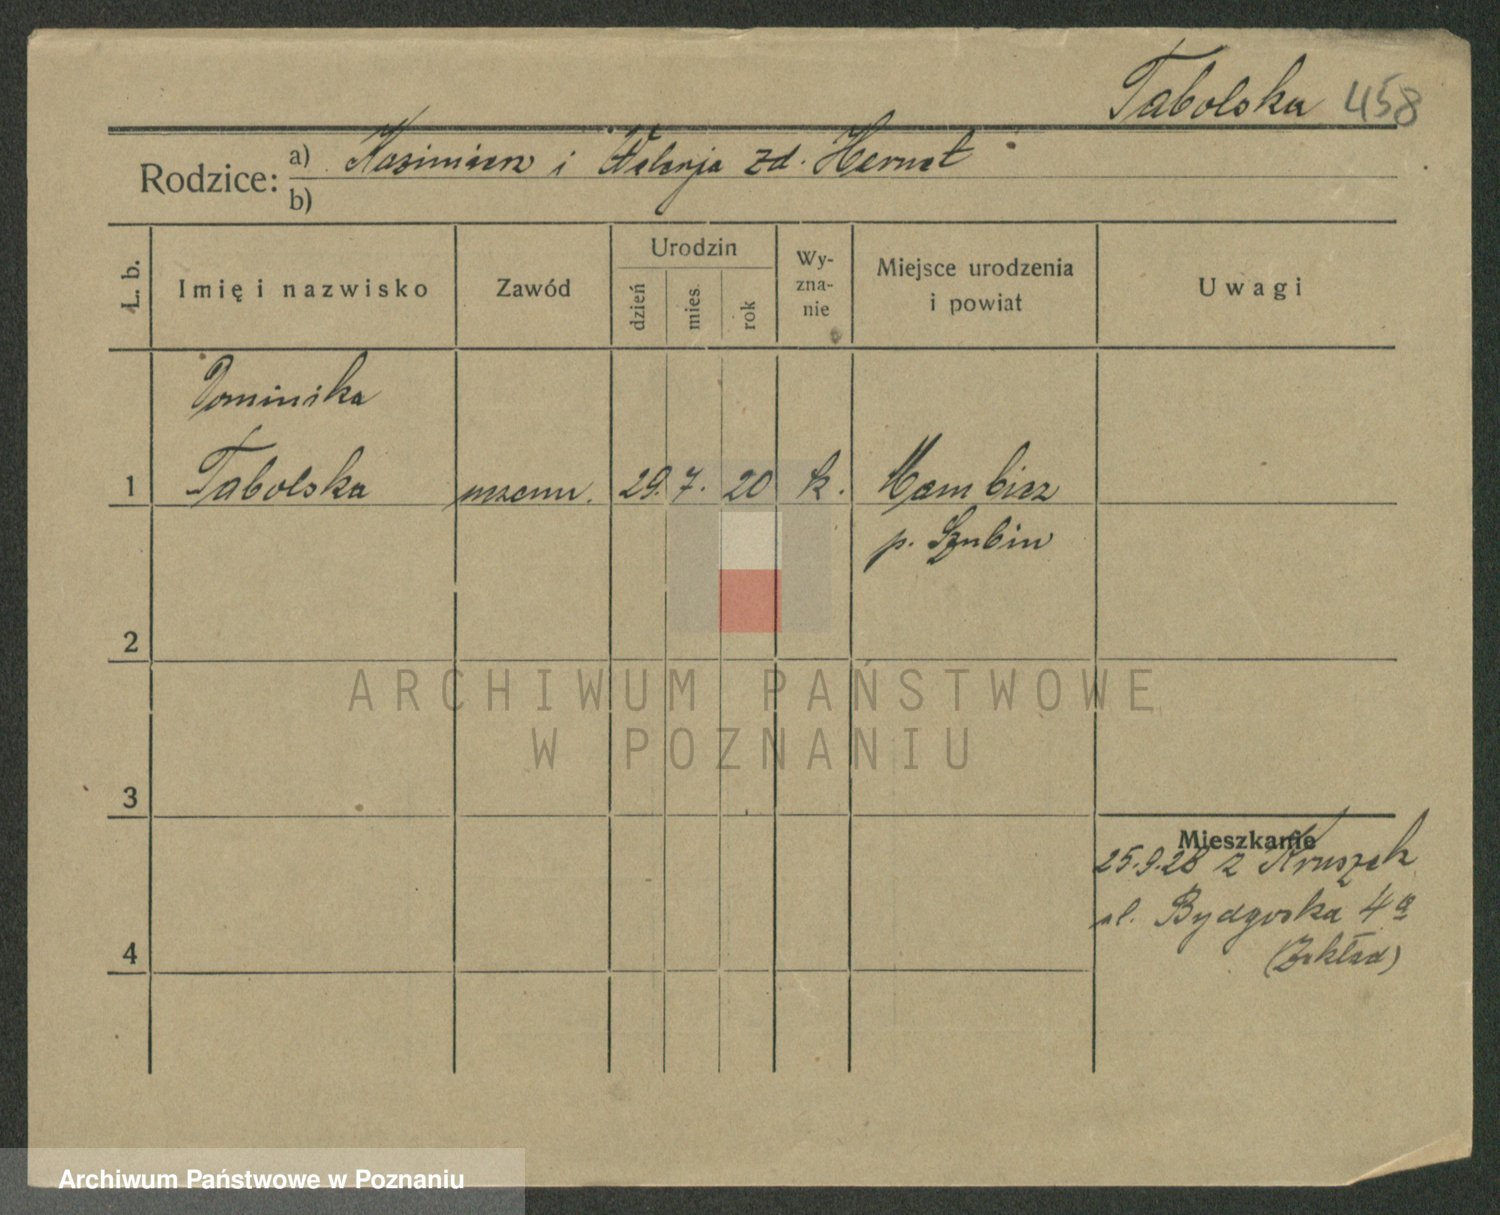 Tabolska 458
Rodzice: a) Kazimierz i Walerja zd. Hernet
b)
L. b.
Imię i nazwisko
Zawód
Urodzin
dzień
mies.
rok
Wy-
zna-
nie
Miejsce urodzenia
i powiat
Uwagi
Dominika
1 Tabolska uczenn. 29. 7. 20 k.
p. Szubin
2
ARCHIWUM PAŃSTWOWE
W POZNANIU
3
Mieszkanie
25.9.28 z
ul. Bydgoska 4a
(Zakład)
4
Archiwum Państwowe w Poznaniu